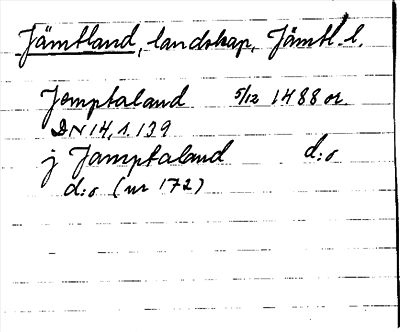 Jämtland, landskap, Jämtl. l.
Jemptaland 5/12 1488 or.
DN 14,1.139
j Jamptaland d:o
d:o (nr 172)